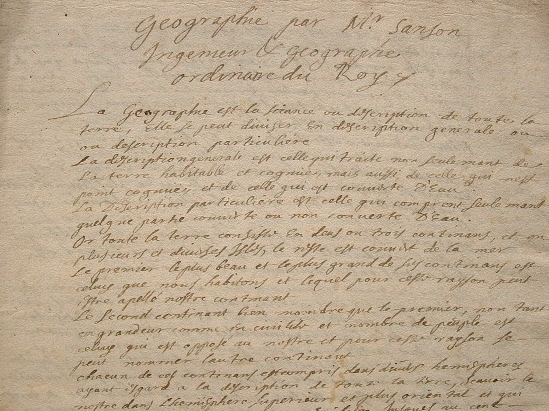 Geographie par Mr. Sanson
Ingenieur & Geographe
ordinaire du Roy
La Geographie est la sciance ou description de toute la
terre, Elle se peut diviser En description generale ou
ou description particuliere
La description generale est celle qui traite non seulemant de
La terre habitable et cognue, mais aussi de celle qui n'est
point cognue, et de celle qui est couverte D'Eau.
La Description particuliere est celle qui comprent seulemant
quelque partie couverte ou non couverte D'Eau.
Or toute la terre consiste En deus ou trois continans, et en
plusieurs et diverses Isles, le reste est couvert de la mer
Le premier le plus beau et le plus grand de ses continans est
celuy que nous habitons et lequel pour cette rayson peut
estre apellé nostre continent
Le second continant bien nombre que le premier, non tant
en grandeur comme en et nombre de peuple est
celuy qui est opposé au nostre et pour cette rayson se
peut nommer lautre continant
chacun de ces continans est compris dans divers hemispheres
ayant esgard a la description de toute la terre, scavoir le
nostre dans l'hemisphere superieur et plus oriental et qui